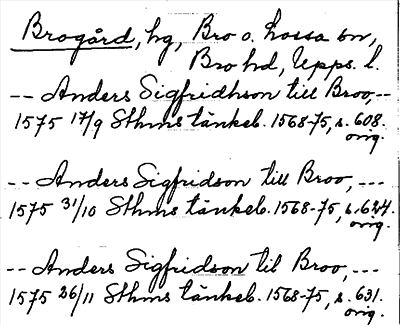 Brogård, hg, Bro o. Lossa sn,
Bro hd, Upps. l.
-- Anders Sigfridhson till Broo, --
1575 17/9 Sthms tänkeb. 1568-75, s. 608.
orig.
-- Anders Sigfridson till Broo, ---
1575 31/10 Sthms tänkeb. 1568-75, s. 624.
orig.
-- Anders Sigfridson til Broo, ---
1575 26/11 Sthms tänkeb. 1568-75, s. 631.
orig.